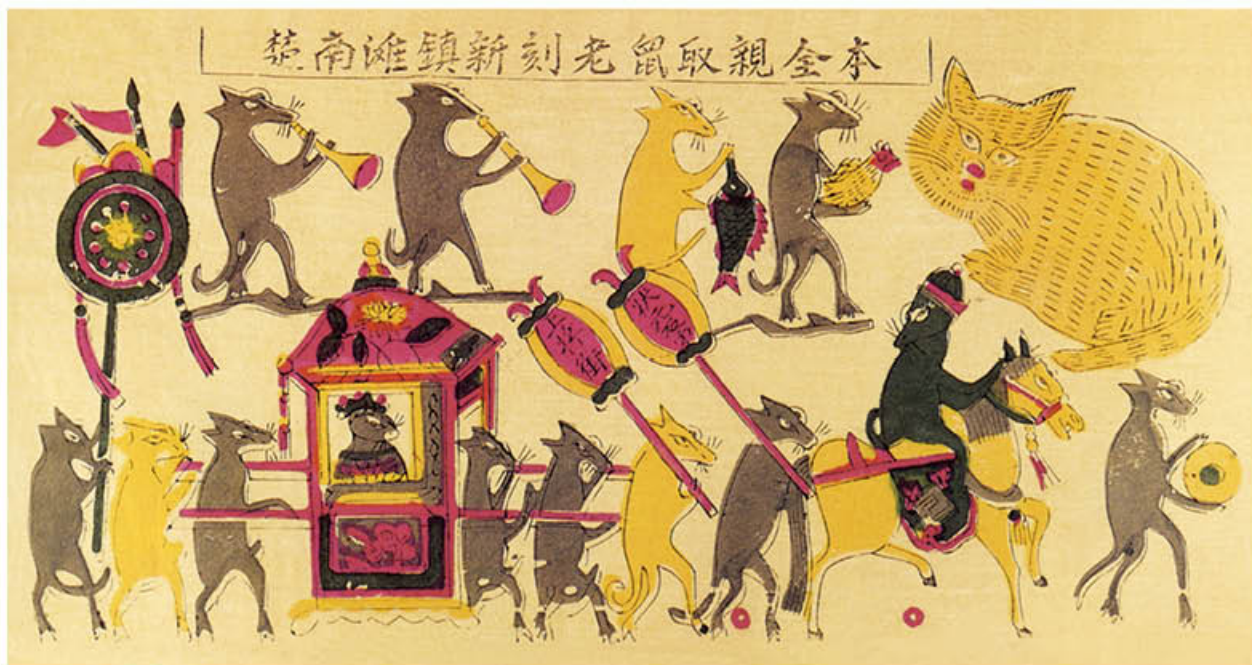 楚南滩鎮新刻老鼠取親全本